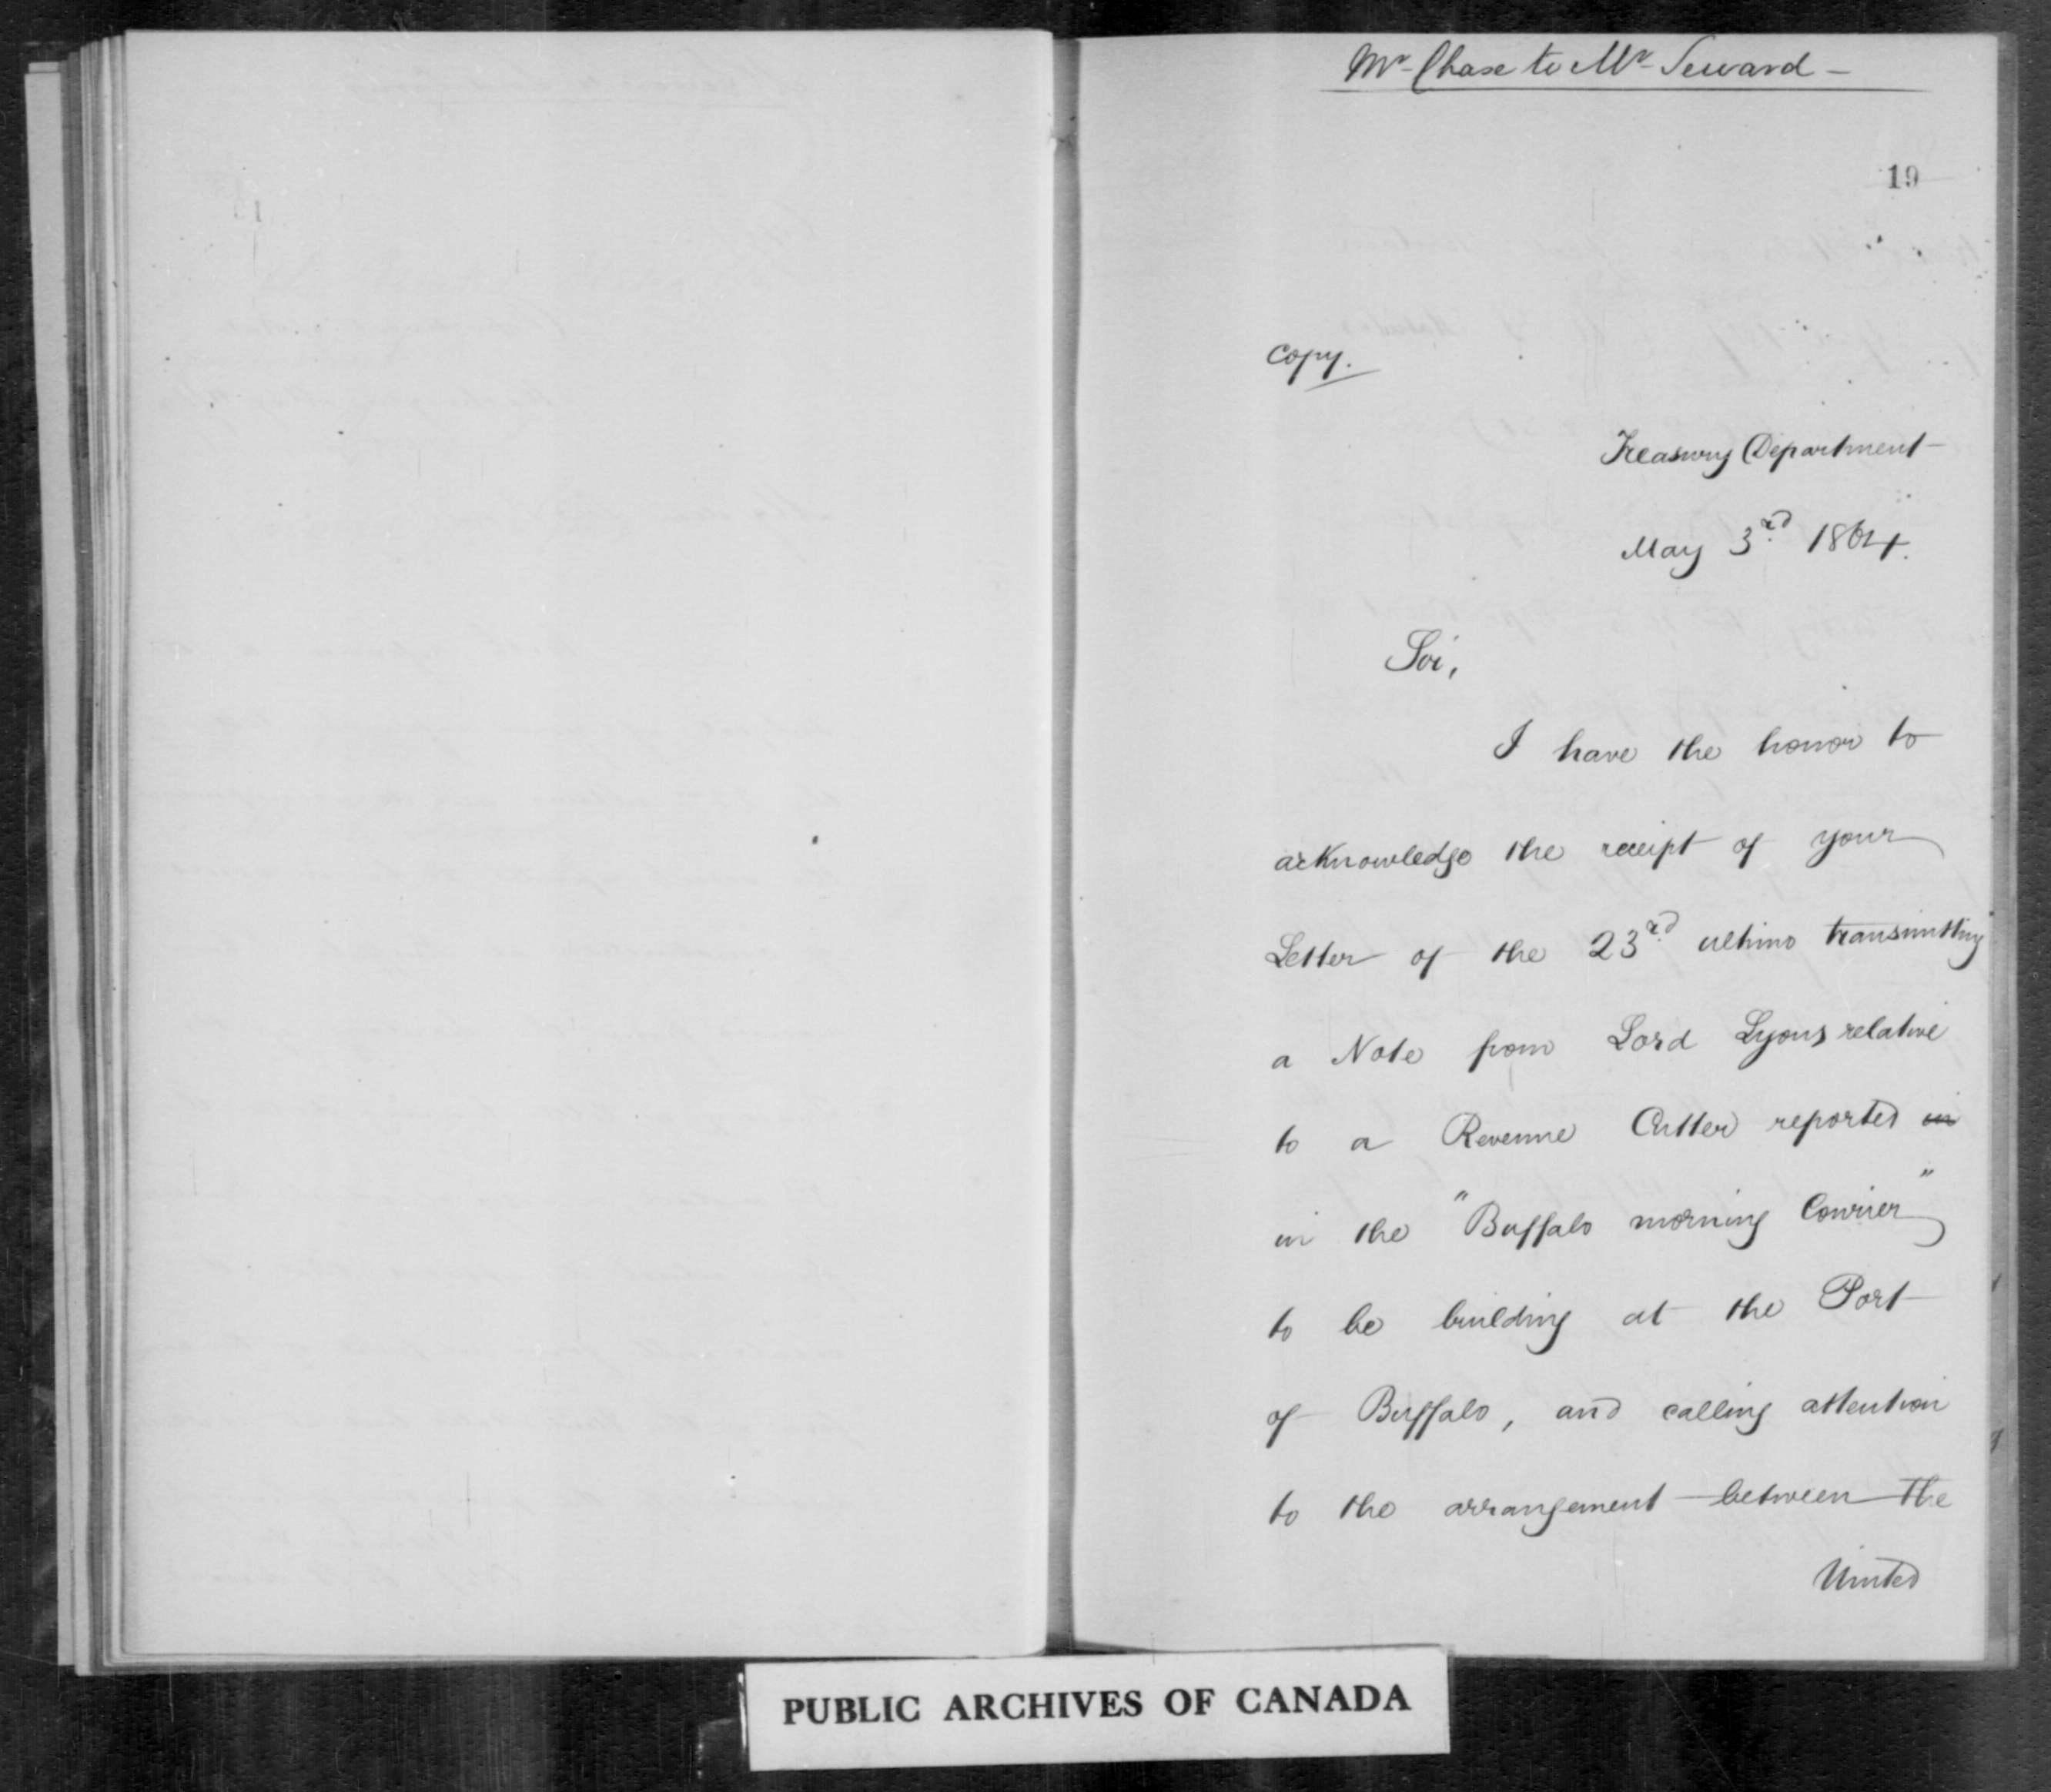 Mr Chase to Mr Seward -
19
Copy.
Treasury Department
May 3rd 1864.
Sir,
I have the honor to
acknowledge the receipt of your
Letter of the 23rd ultimo transmitting
a Note from Lord Lyons relative
to a Revenue Cutter reported in
in the "Buffalo morning Courier"
to be building at the Port
of Buffalo, and calling attention
to the arrangement between the
United
PUBLIC ARCHIVES OF CANADA